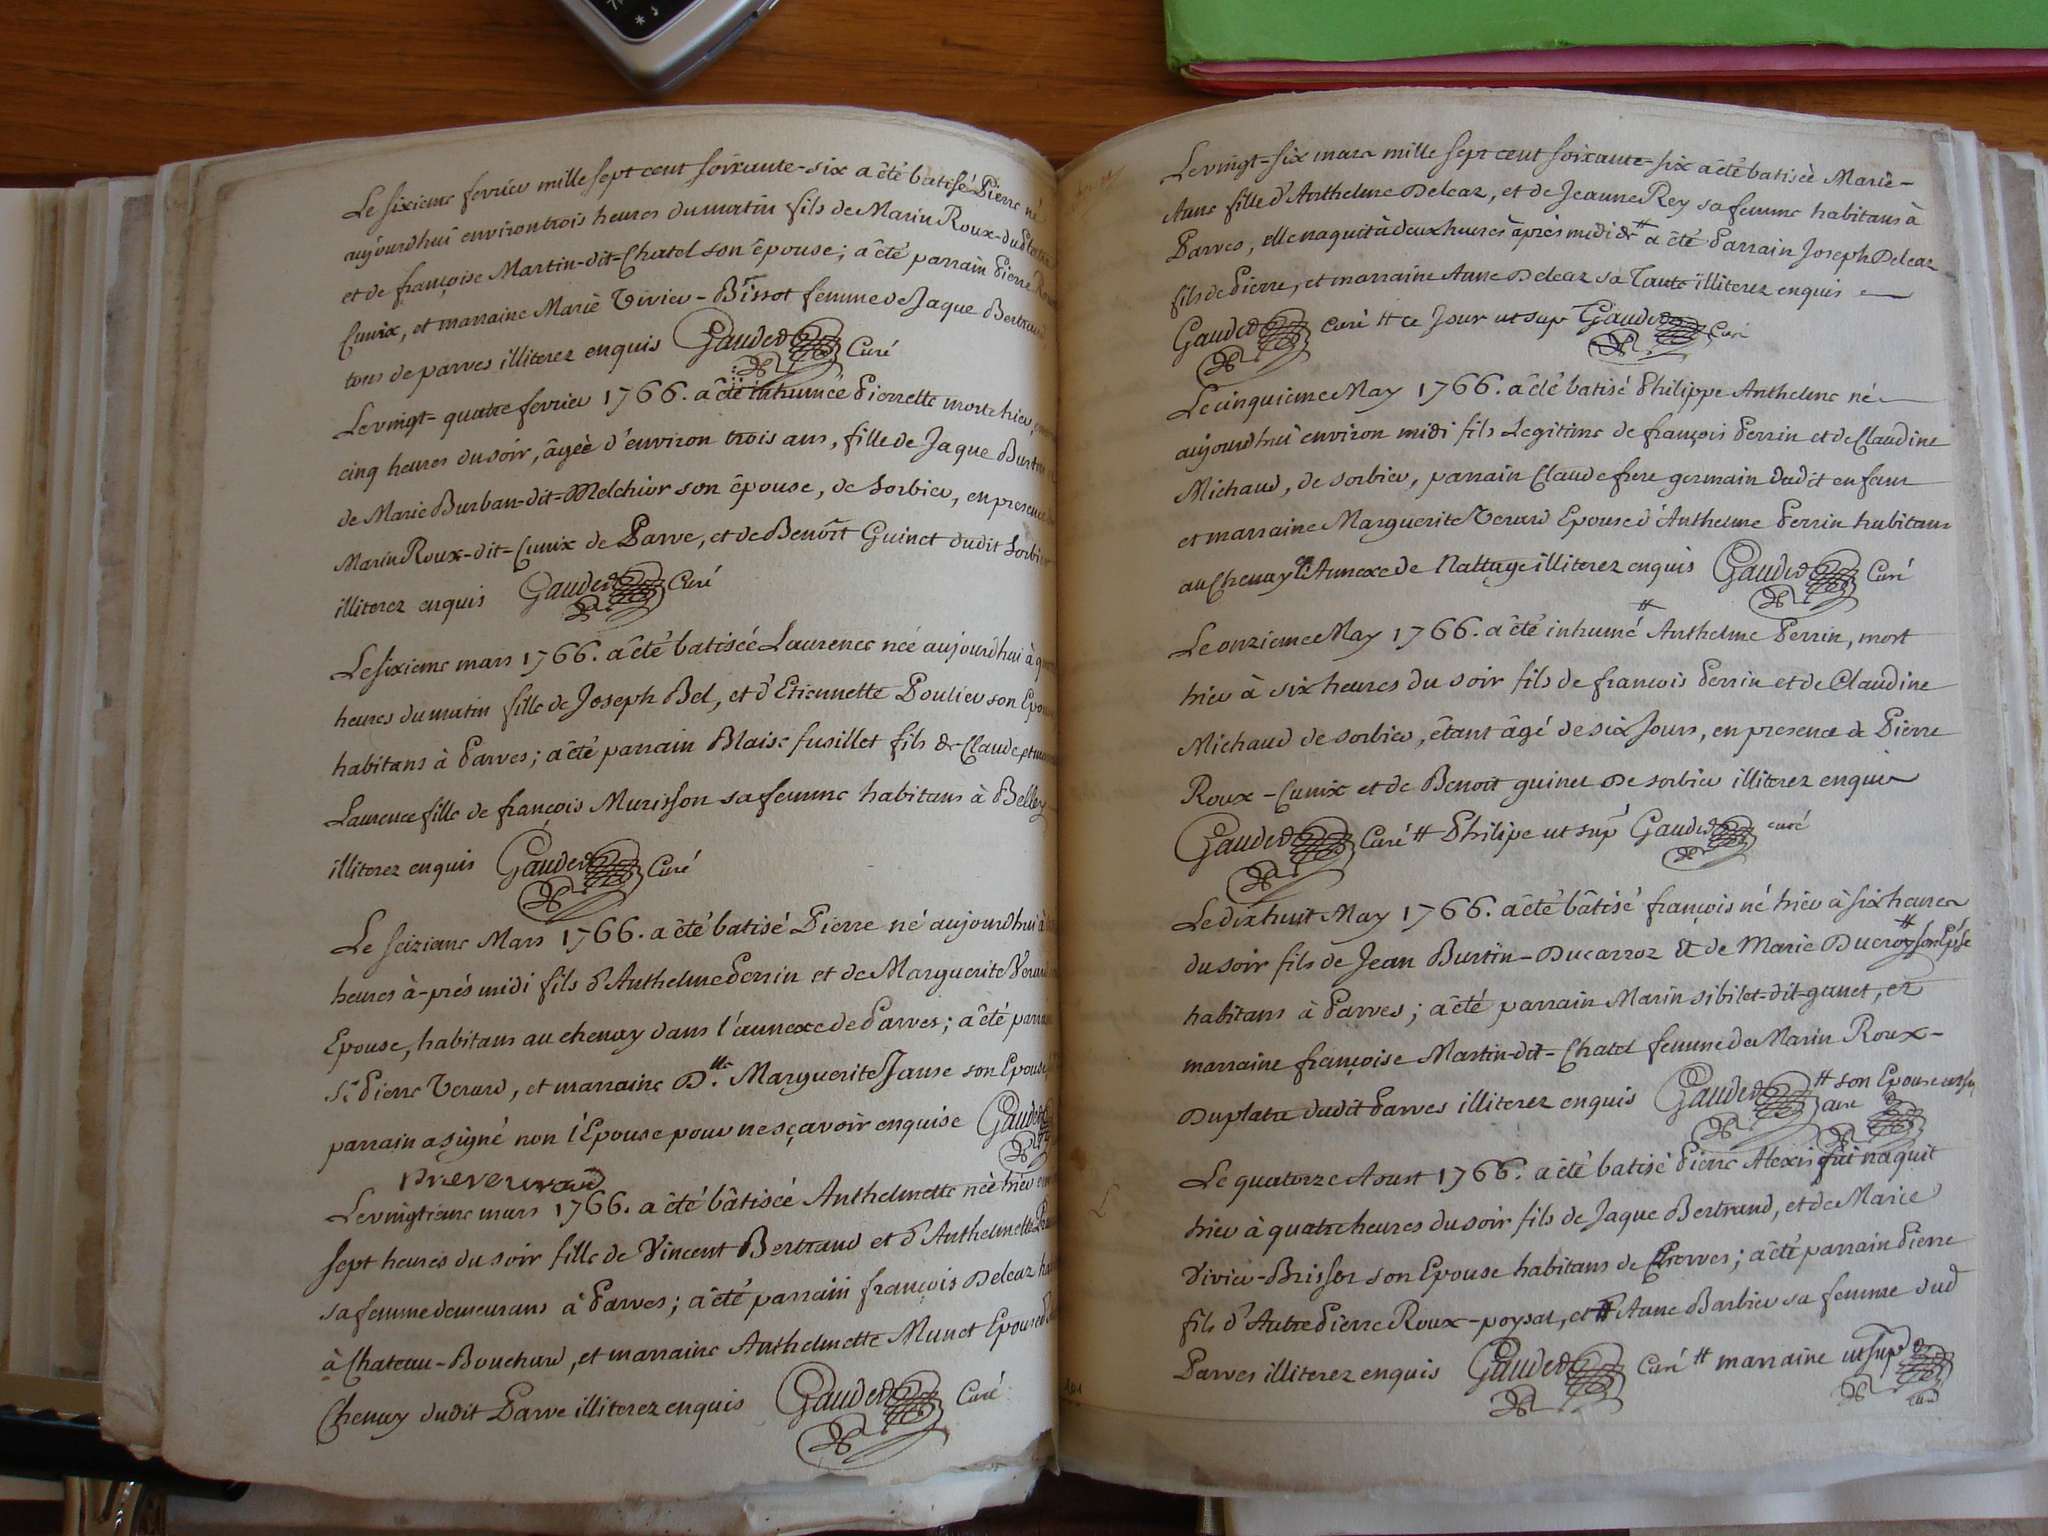 Le sixieme fevrier mille sept cent soixante-six a êté batisé Pierre né
aujourdhui environ trois heures du matin fils de Marin Roux-
et de françoise Martin-dit-Chatel son êpouse; a êté parrain Pierre
Cunix, et marraine Marie Vivier-Bissot femme de Jaque Bertrand
tous de parves illiterez enquis Gauded Curé
Le vingt-quatre fevrier 1766. a êté inhumée Pierrette morte hier,
cinq heures du soir, âgée d'environ trois ans, fille de Jaque
de Marie Burban-dit-Melchior son êpouse, de Sorbier, en presence
Marin Roux-dit-Cunix de Parve, et de Benôit Guinet dudit Sorbier
illiterez enquis Gauded Curé
Le sixieme mars 1766. a êté batiséé Laurence née aujourdhui à
heures du matin fille de Joseph Bel, et d'Etiennette Poulier son Epouse
habitans à Parves; a êté parrain Blaise fusillet fils de Claude,
Laurence fille de françois Murisson sa femme habitans à Belley
illiterez enquis Gauded Curé
Le seizieme Mars 1766. a êté bâtisé Pierre né aujourdhui à
heures à-prés midi fils d'Anthelme Perrin et de Marguerite Verard
Epouse, habitans au chenay dans l'annexe de Parves; a êté parrain
Sr Pierre Verard, et marraine Dlle Marguerite Janse son Epouse,
parrain a signé non l'Epouse pour ne sçavoir enquise Gauded
Le vingtieme mars 1766. a êté bâtiséé Anthelmette née hier
sept heures du soir fille de Vincent Bertrand et d'Anthelmette
sa femme demeurans à Parves; a êté parrain françois Deleaz
à Chateau-Bouchard, et marraine Anthelmette Munet Epouse
Chenay dudit Parve illiterez enquis Gauded Curé
Le vingt-six mars mille sept cent soixante-six a êté batiséé Marie-
Anne fille d'Anthelme Deleaz, et de Jeanne Rey sa femme habitans à
Parves, elle naquit à deux heures àprès midi # a êté Parrain Joseph Deleaz
fils de Pierre, et marraine Anne Deleaz sa Tante illiterez enquis
Gauded curé # ce Jour ut sup Gauded Curé
Le cinquieme May 1766. a êté bâtisé Philippe Anthelme né
aujourdhui environ midi fils Legitime de françois Perrin et de Claudine
Michaud, de sorbier, parrain Claude frere germain dudit enfant
et marraine Marguerite Verard Epouse d'Anthelme Perrin habitans
au Chenay Annexe de Nattage illiterez enquis Gauded Curé
Le onzieme May 1766. a êté inhumé # Anthelme Perrin, mort
hier à six heures du soir fils de francois Perrin et de Claudine
Michaud de sorbier, êtant âgé de six Jours, en presence de Pierre
Roux-Cunix et de Benoit guinet De sorbier illiterez enquis
Gauded Curé # Philipe ut sup Gauded curé
Le dix huit May 1766. a êté bâtisé françois né hier à six heures
du soir fils de Jean Burtin-Ducarroz Et de Marie Ducroy #
habitans à Parves; a êté parrain Marin sibilet-dit-ganet, et
marraine françoise Martin-dit-Chatel femme de Marin Roux-
Duplatre dudit Parves illiterez enquis Gauded Curé # son Epouse
Le quatorze Aoust 1766. a êté batisé Pierre Alexis qui naquit
hier à quatre heures du soir fils de Jaque Bertrand, et de Marie
Vivier-Brisson son Epouse habitans de Parves; a êté parrain Pierre
fils d'Autre Pierre Roux-poysat, et # Anne Barbier sa femme dud
Parves illiterez enquis Gauded Curé # marraine ut sup